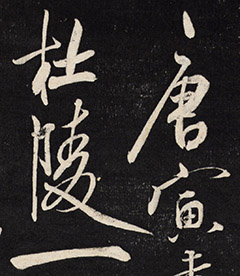 唐寅
杜陵一